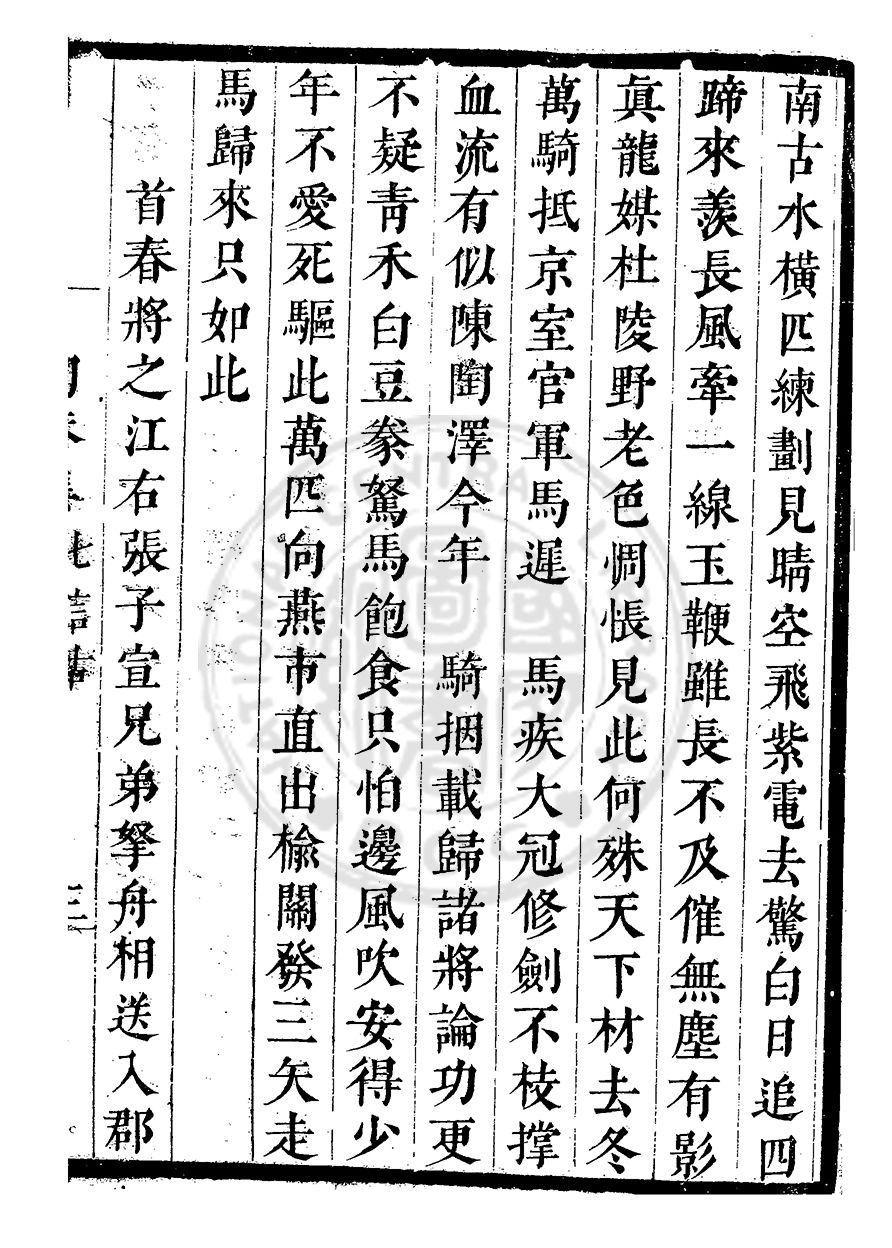 南古水橫匹練劃見晴空飛紫電去驚白日追四
蹄來羨長風牽一線玉鞭雖長不及催無塵有影
眞龍媒杜陵野老色惆悵見此何殊天下材去冬
萬騎抵京室官軍馬遲　馬疾大冠修劍不枝撑
血流有似陳陶澤今年　騎捆載歸諸將論功更
不疑靑禾白豆豢駑馬飽食只怕邊風吹安得少
年不愛死驅此萬匹向燕市直出楡關發三矢走
馬歸來只如此
首春將之江右張子宣兄弟拏舟相送入郡
三